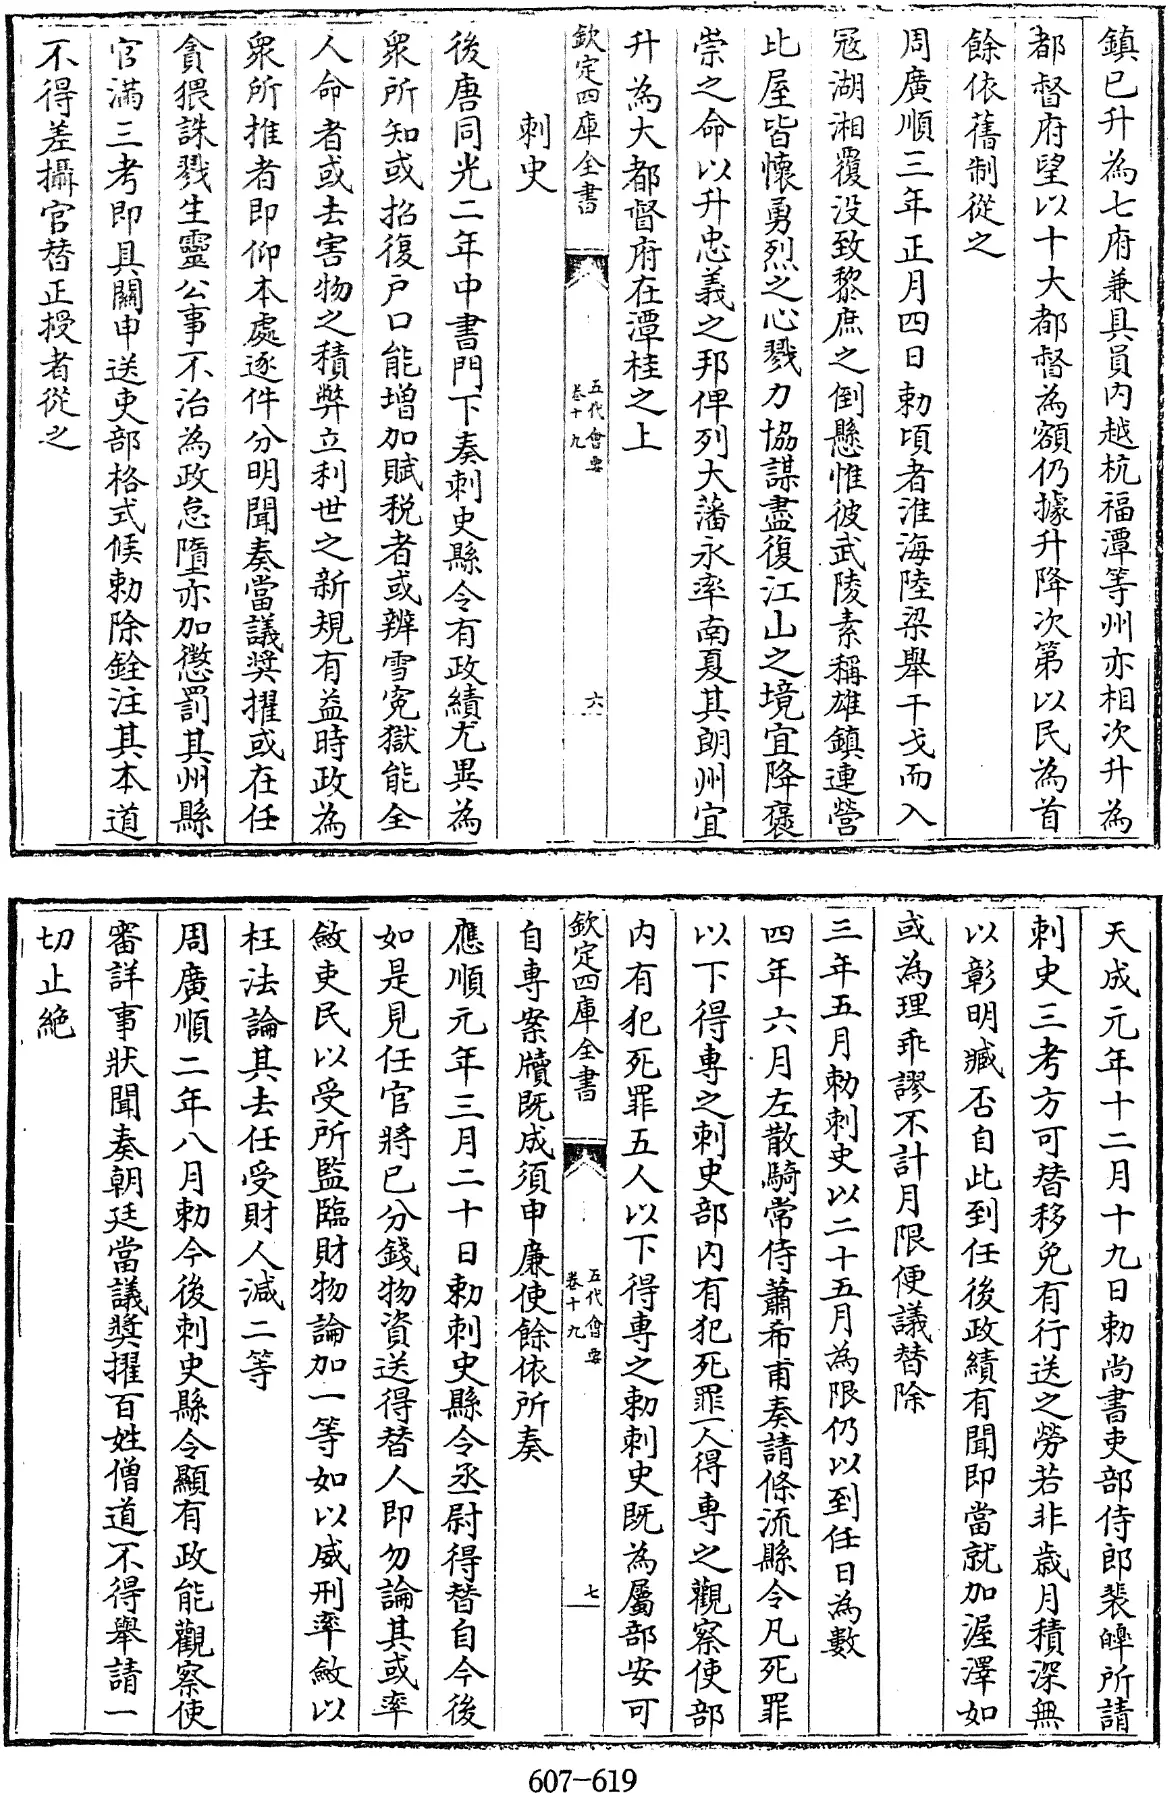 鎮已升為七府兼具員内越杭福潭等州亦相次升為
都督府望以十大都督為額仍據升降次第以民為首
餘依舊制從之
周廣順三年正月四日勅頃者淮海陸梁舉干戈而入
冦湖湘覆没致黎庶之倒懸惟彼武陵素稱雄鎮連營
比屋皆懷勇烈之心戮力協謀盡復江山之境宜降褒
崇之命以升忠義之邦俾列大藩永率南夏其朗州宜
升為大都督府在潭桂之上
欽定四庫全書
五代會要
卷十九
六
刺史
後唐同光二年中書門下奏刺史縣令有政績尤異為
衆所知或招復戸口能增加賦税者或辨雪寃獄能全
人命者或去害物之積弊立利世之新規有益時政為
衆所推者即仰本處逐件分明聞奏當議奬擢或在任
貪猥誅戮生靈公事不治為政怠墮亦加懲罰其州縣
官滿三考即具闗申送吏部格式候勅除銓注其本道
不得差攝官替正授者從之
天成元年十二月十九日勅尚書吏部侍郎裴皥所請
刺史三考方可替移免有行送之勞若非歳月積深無
以彰明臧否自此到任後政績有聞即當就加渥澤如
或為理乖謬不計月限便議替除
三年五月勅刺史以二十五月為限仍以到任日為數
四年六月左散騎常侍蕭希甫奏請條流縣令凡死罪
以下得專之刺史部内有犯死罪一人得專之觀察使部
内有犯死罪五人以下得專之勅刺史既為屬部安可
欽定四庫全書
五代會要
卷十九
七
自專案牘既成須申廉使餘依所奏
應順元年三月二十日勅刺史縣令丞尉得替自今後
如是見任官將已分錢物資送得替人即勿論其或率
斂吏民以受所監臨財物論加一等如以威刑率斂以
枉法論其去任受財人減二等
周廣順二年八月勅今後刺史縣令顯有政能觀察使
審詳事狀聞奏朝廷當議奬擢百姓僧道不得舉請一
切止絶
607-619